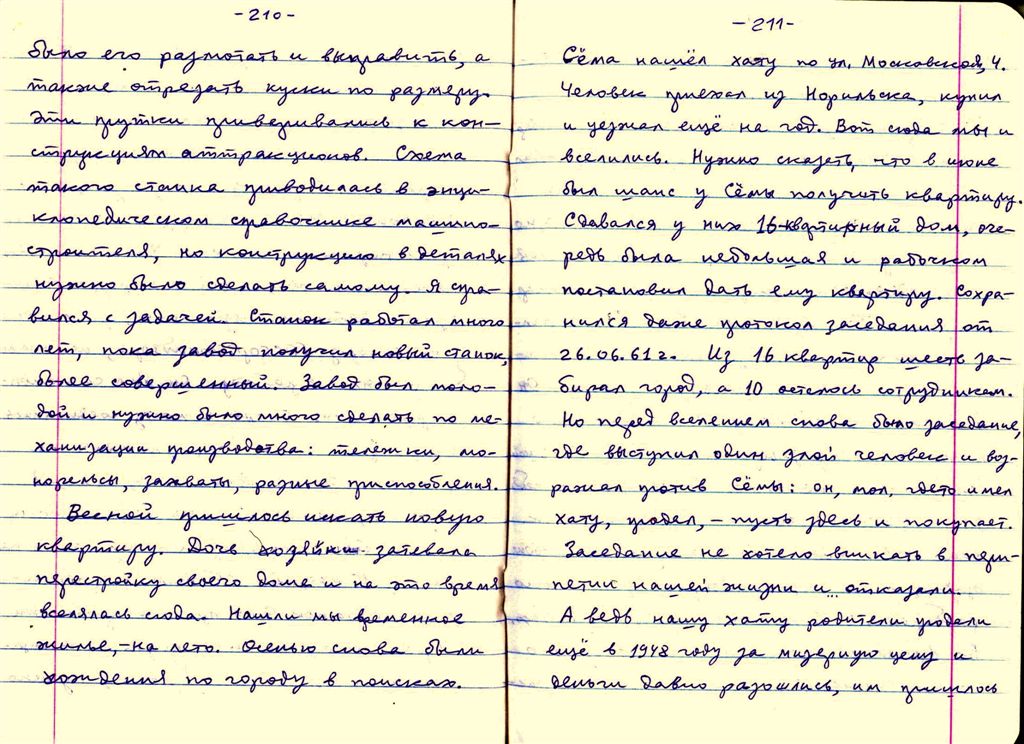 - 210 -
было его размотать и выправить, а
также отрезать куски по размеру.
Эти прутки приваривались к кон-
струкциям аттракционов. Схема
такого станка приводилась в энци-
клопедическом справочнике машино-
строителя, но конструкцию в деталях
нужно было сделать самому. Я спра-
вился с задачей. Станок работал много
лет, пока завод получил новый станок,
более совершенный. Завод был моло-
дой и нужно было много сделать по ме-
ханизации производства: тележки, мо-
норельсы, захваты, разные приспособления.
Весной пришлось искать новую
квартиру. Дочь хозяйки затевала
перестройку своего дома и на это время
вселялась сюда. Нашли мы временное
жильё, – на лето. Осенью снова были
хождения по городу в поисках.
- 211 -
Сёма нашёл хату по ул. Московской, 4.
Человек приехал из Норильска, купил
и уезжал ещё на год. Вот сюда мы и
вселились. Нужно сказать, что в июне
был шанс у Сёмы получить квартиру.
Сдавался у них 16-квартирный дом, оче-
редь была небольшая и рабочком
постановил дать ему квартиру. Сохра-
нился даже протокол заседания от
26.06.61г. Из 16 квартир шесть за-
бирал город, а 10 осталось сотрудникам.
Но перед вселением снова было заседание,
где выступил один злой человек и воз-
ражал против Сёмы: он, мол, где-то имел
хату, продал, – пусть здесь и покупает.
Заседание не хотело вникать в пери-
петии нашей жизни и отказали.
А ведь нашу хату родители продали
ещё в 1948 году за мизерную цену и
деньги давно разошлись, им пришлось